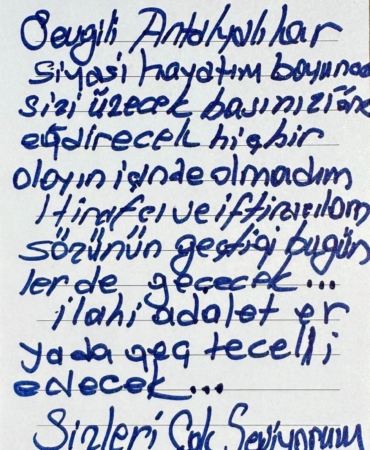 Sevgili Antalyalılar
siyasi hayatım boyunca
sizi üzecek başınızı öne
eğdirecek hiçbir
olayın içinde olmadım
İtirafçı ve iftiracıların
sözünün geçtiği bugün
lerde geçecek...
ilahi adalet er
yada geç tecelli
edecek...
Sizleri Çok Seviyorum